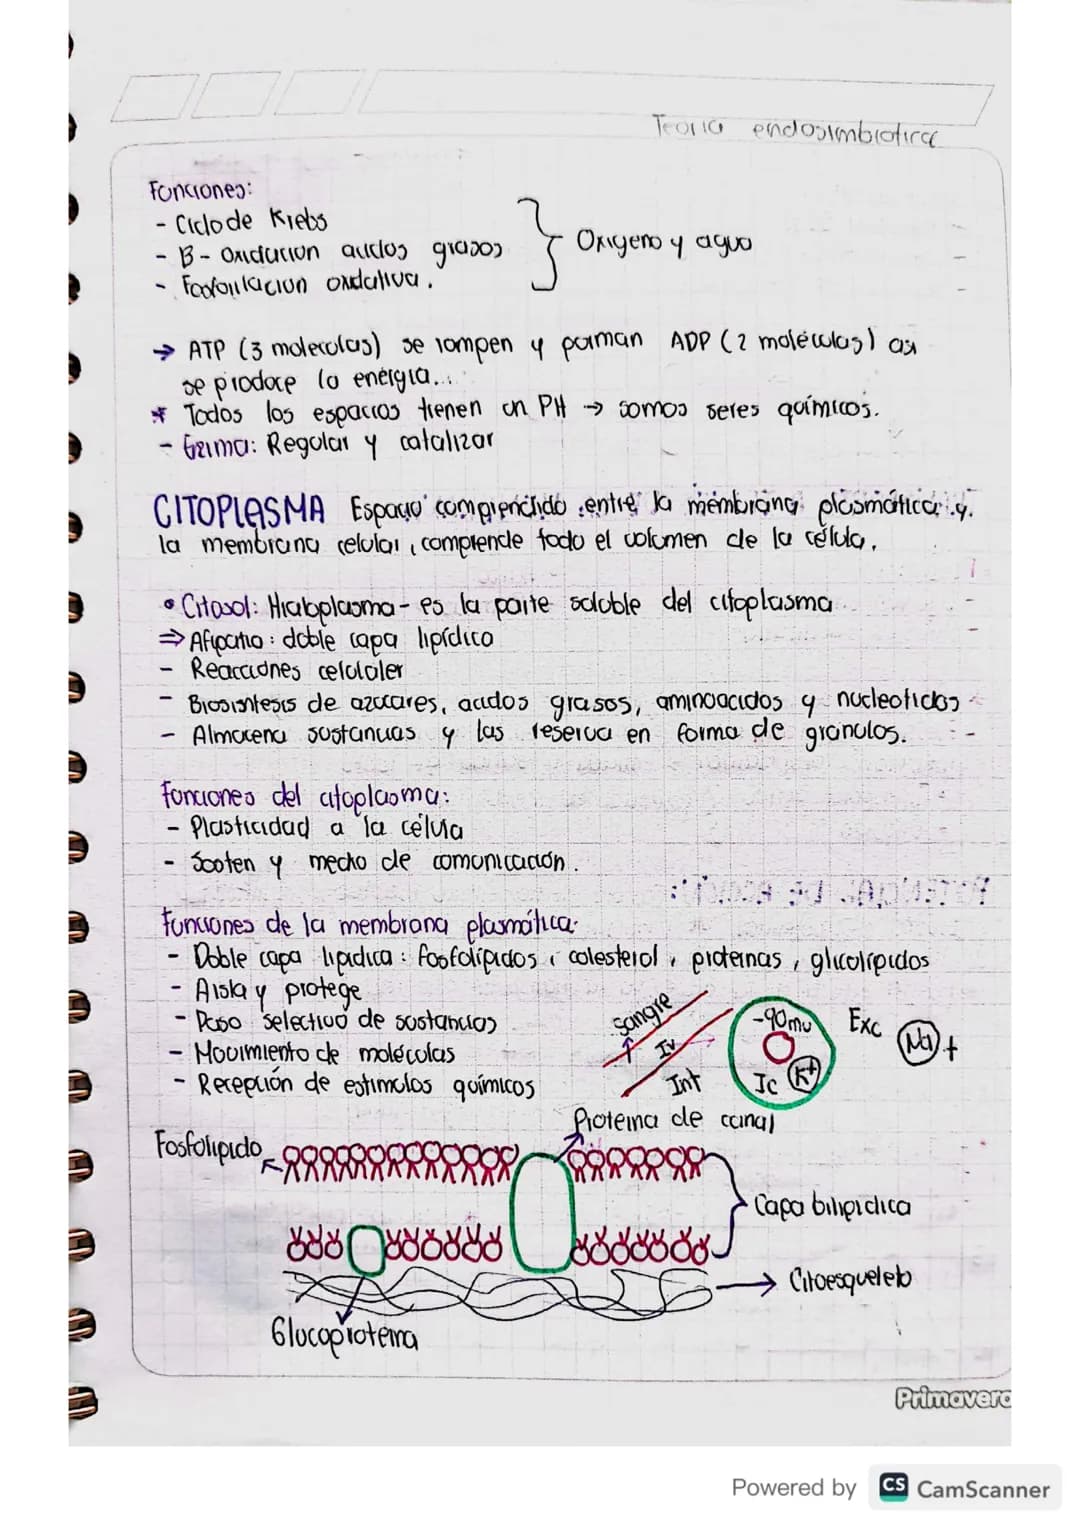 Teoria endosimbiotica
Funciones:
- Ciclo de Krebs
- B-Oxidacion acidos grasos
- Fosforilacion oxidativa.
Oxigeno y agua
→ ATP (3 moleculas) se rompen y forman ADP (2 moléculas) asi
se produce la energia...
* Todos los espacios tienen un PH → somos seres químicos.
- Ezima: Regular y catalizar
CITOPLASMA Espacio comprendido entre la membrana plasmática y
la membrana celular, comprende todo el volumen de la célula.
• Citosol: Hialoplasma - es la parte soluble del citoplasma
⇒ doble capa lipídico
- Reacciones celululer
- Biosintesis de azucares, acidos grasos, aminoacidos y nucleotidos
- Almacena sustancias y las reserva en forma de granulos.
funciones del citoplasma:
- Plasticidad a la célula
- Sosten y mecho de comunicación.
funciones de la membrana plasmática:
- Doble capa lipidica: fosfolípidos, colesterol, proteinas, glicolípidos
- Aisla y protege
- Paso selectivo de sustancias
- Movimiento de moléculas
- Recepción de estimulos químicos
Sangre
Iv
Int
-90mv
Ic K+
Exc
Na+
Proteina de canal
Fosfolipido
Capa bilipidica
Citoesqueleto
Glucoproteina
Primavera
Powered by CS CamScanner